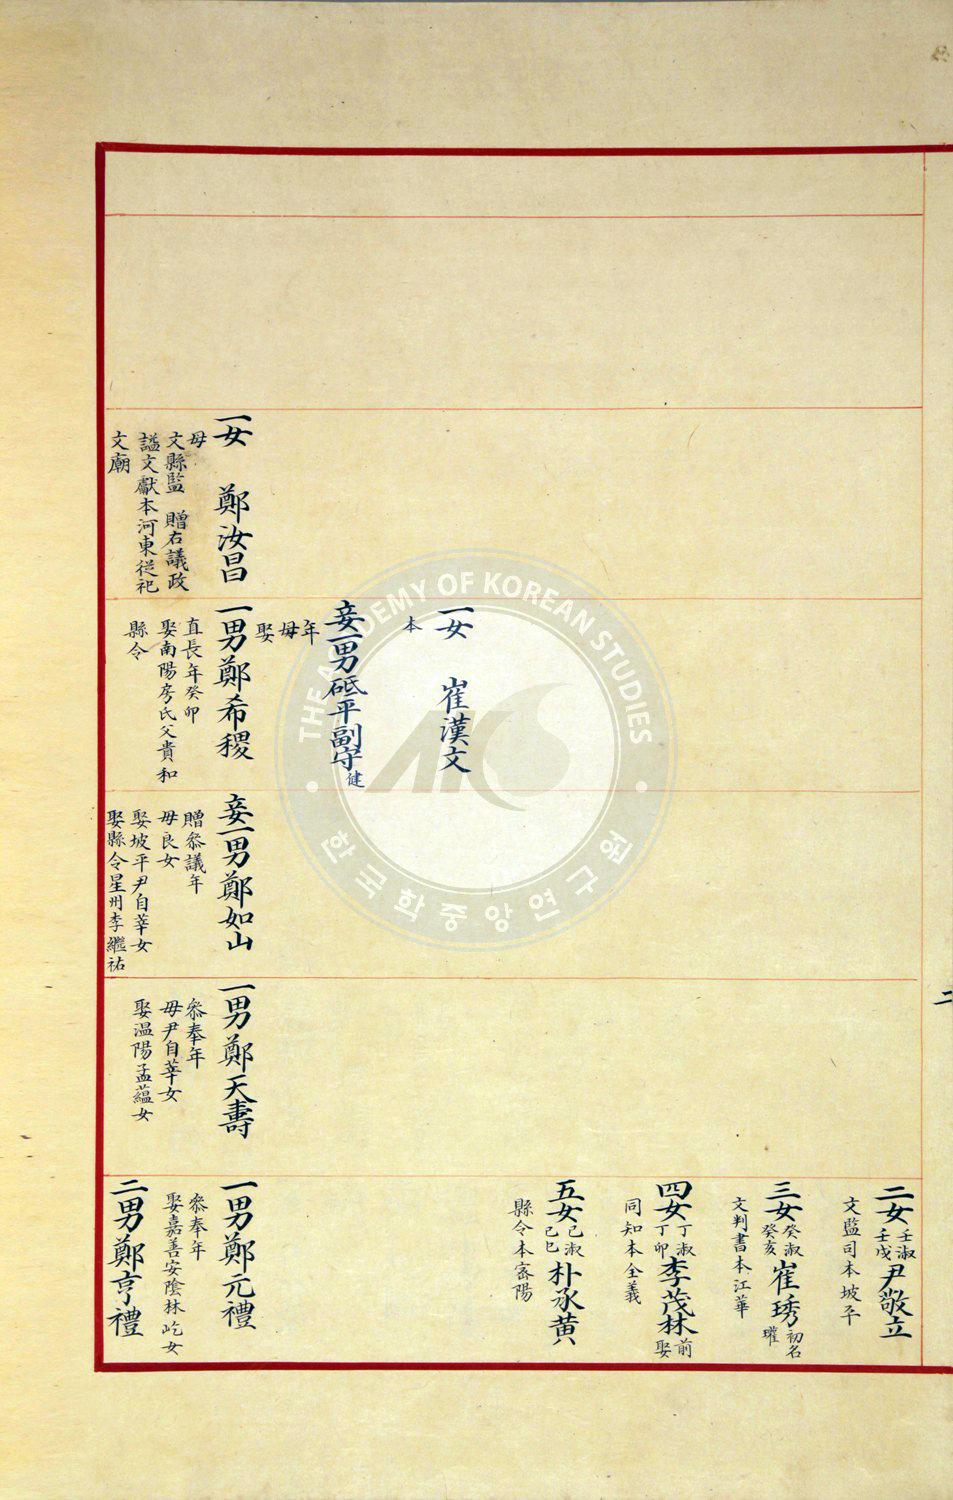 一女 鄭汝昌
母
文縣監 贈右議政
謚文獻本河東從祀
文廟
一女 崔漢文
本
妾一男砥平副守健
年
母
娶
一男鄭希稷
直長年癸卯
娶南陽房氏父貴和
縣令
妾一男鄭如山
贈叅議年
母良女
娶坡平尹自莘女
娶縣令星州李繼祐
一男鄭天壽
叅奉年
母尹自莘女
娶温陽孟蘊女
二女壬淑壬戌尹敬立
文監司本坡平
三女癸淑癸亥崔琇初名瓘
文判書本江華
四女丁淑丁卯李茂林前娶
同知本全義
五女己淑己巳朴承黄
縣令本密陽
一男鄭元禮
叅奉年
娶嘉善安陰林屹女
二男鄭亨禮
二
THE ACADEMY OF KOREAN STUDIES
AKS
한국학중앙연구원